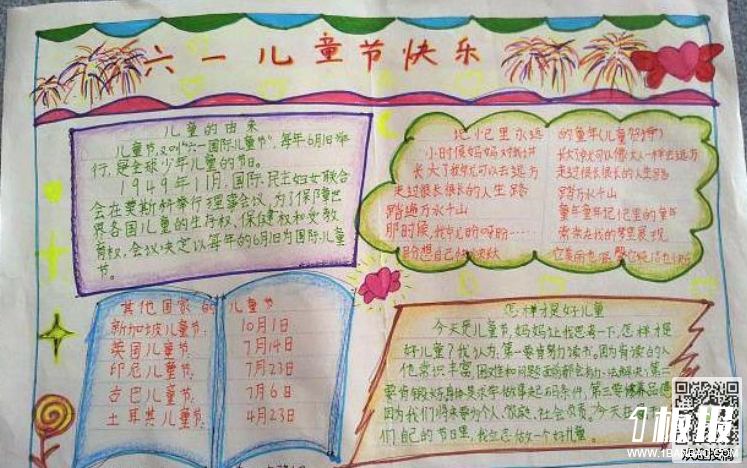 六一儿童节快乐
儿童的由来
儿童节,又叫“六一国际儿童节”,每年6月1日举
行,是全球少年儿童的节日。
1949年11月,国际民主妇女联合
会在莫斯科举行理事会议,为了保障世
界各国儿童的生存权、保健权和受教
育权,会议决定以每年的6月1日为国际儿童
节。
记忆里永远
小时候妈妈对我讲
长大了就可以去远方
走过很长很长的人生路
踏遍万水千山
那时候,我心盼呀盼……
盼想自己快快
的童年(儿童节诗)
长大了就可以像大人一样去远方
走过很长很长的人生路
踏万水千山
童年童年记忆里的童年
常常在我的梦里展现
它美丽也
其他国家的儿童节
新加坡儿童节: 10月1日
英国儿童节: 7月14日
印尼儿童节: 7月23日
古巴儿童节: 7月6日
土耳其儿童节: 4月23日
怎样才是好儿童
今天是儿童节,妈妈让我思考一下,怎样才是
好儿童?我认为:第一要肯努力读书。因为有读的人
他常识丰富,困难和问题面前都会努力法解决;第二
要有钢好身体是求学做事起码条件,第三要修养品德
因为我们将来要为个人、家庭、社会负责。今天在
们自己的节日里,我立志做一个好儿童。
1板报
WWW.1BANBAO.COM